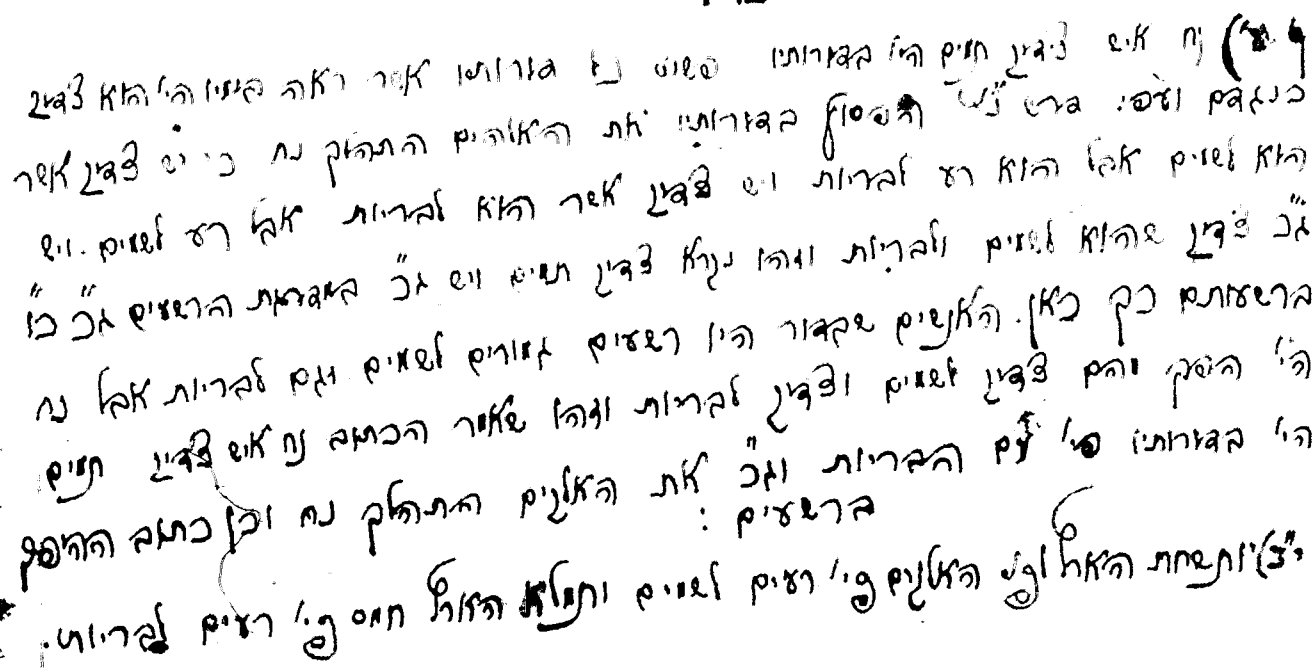 נח איש צדיק תמים הי' בדורותיו פשוט נג' דורותיו אשר ראה בעיניו הי' הוא צדיק
כנגדם ועפי' פרש"י הפסוק בדורותיו את האלהים התהלך נח כי יש צדיק אשר
הוא לשמים אבל הוא רע לבריות ויש צדיק אשר הוא לבריות אבל רע לשמים. ויש
ג"כ צדיק שהוא לשמים ולבריות וזהו נקרא צדיק תמים ויש ג"כ במדרגת הרשעים ג"כ כו"
ברשעותם כך כאן. האנשים שבדור היו רשעים גמורים לשמים וגם לבריות אבל נח
הי' היפך מהם צדיק לשמים וצדיק לבריות וזהו שאמר הכתוב נח איש צדיק תמים
הי' בדורותיו פי' עם הבריות וג"כ את האלקים התהלך נח וכן כתוב ההיפך
ברשעים :
ותשחת הארץ לפני האלקים פי' רעים לשמים ותמלא הארץ חמס פי' רעים לבריות.